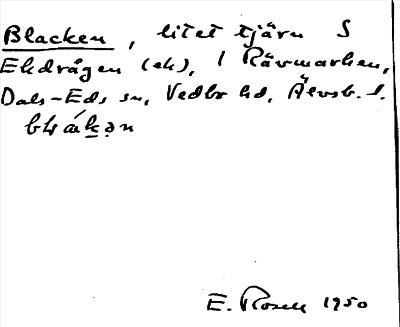 Blacken, litet tjärn S
Ekdrågen (ek), i Rävmarken,
Dals-Eds sn, Vedbo hd, Älvsb. l.
E. Rosell 1950